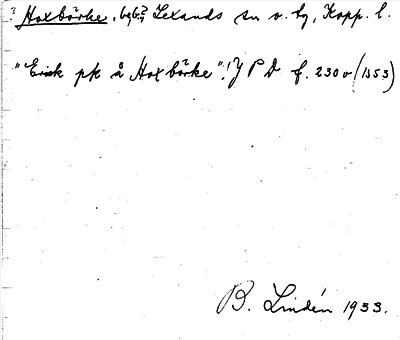 ? Hoxbörke, beb.? Lexands sn o. tg, Kopp. l.
"Erick pk å Hoxbörke"! J P D f. 230 v (1553)
B. Lindén 1933.